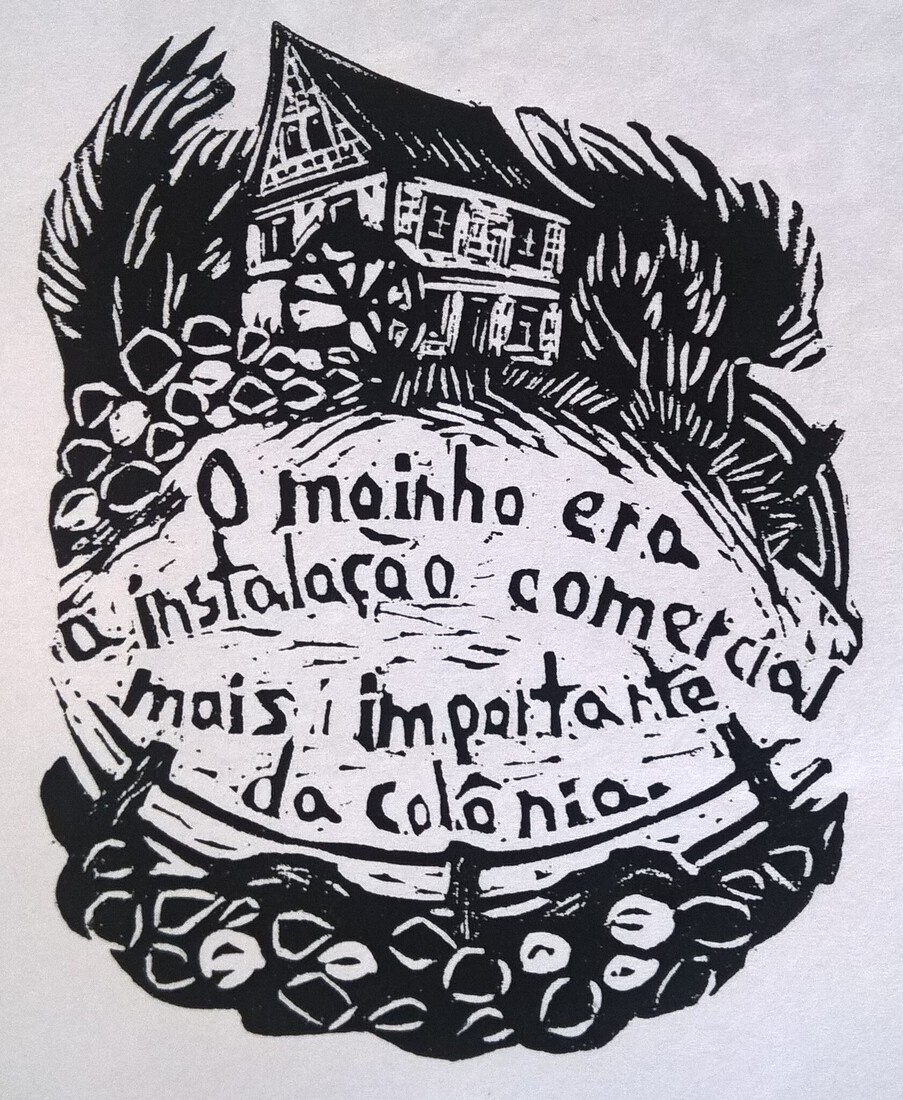 O moinho era
a instalação comercial
mais importante
da colônia.